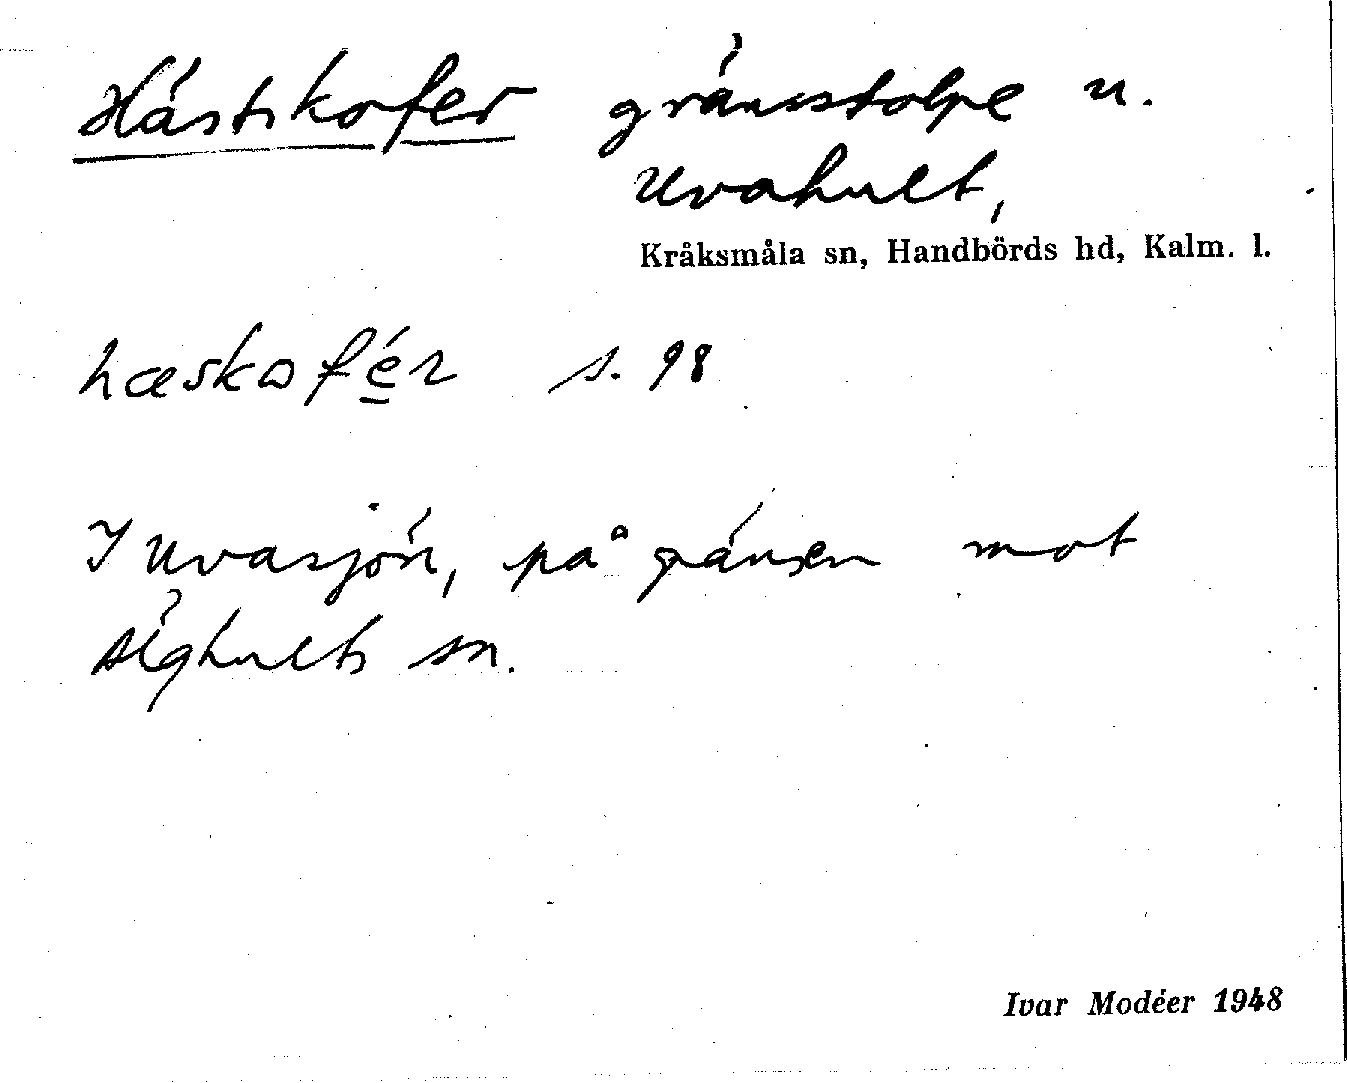 Hästskofer gränsstolpe u.
Uvahult,
Kråksmåla sn, Handbörds hd, Kalm. l.
hæskofér s. 98
I Uvasjön, på gränsen mot
Älghults sn.
Ivar Modéer 1948